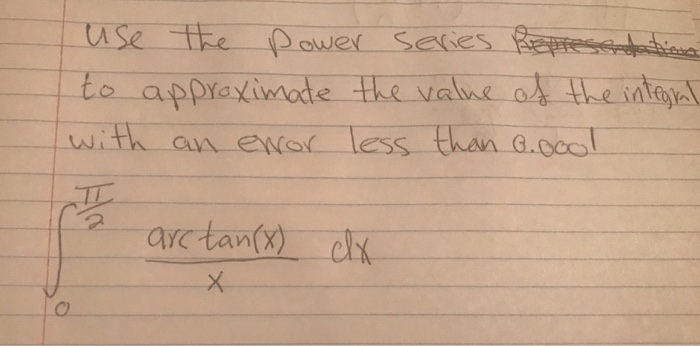 use the power series Representation
to approximate the value of the integral
with an error less than 0.0001
∫₀^(π/2) arctan(x)/x dx